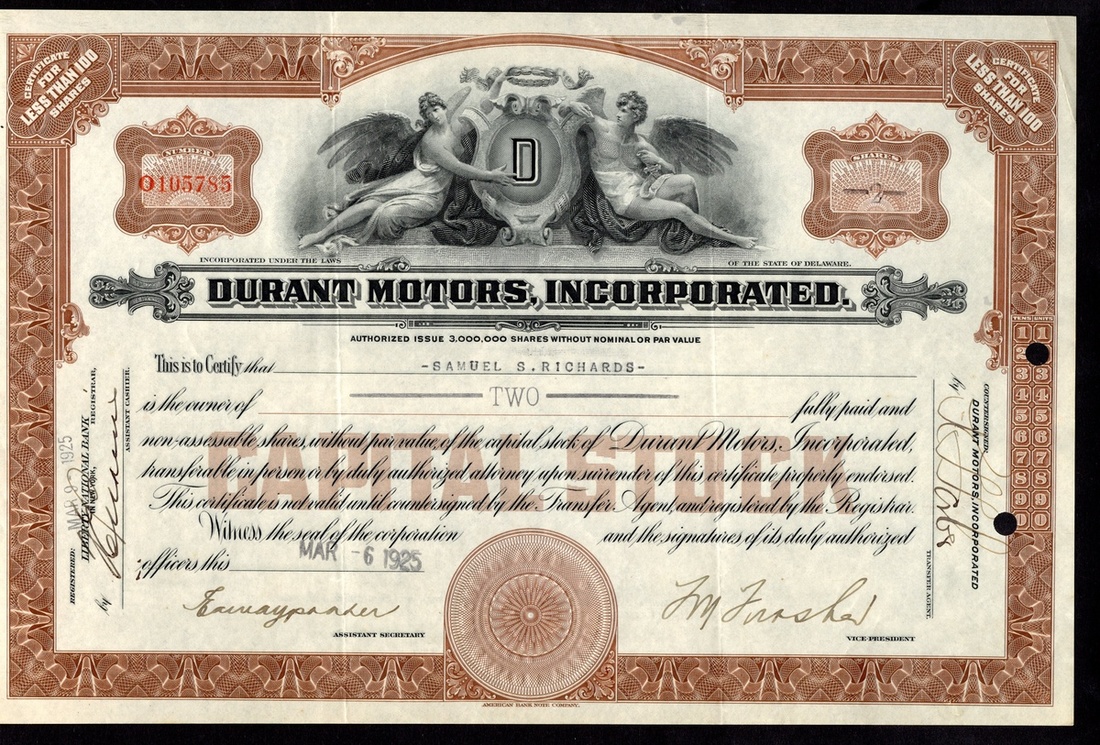 CERTIFICATE
FOR
LESS THAN 100
SHARES
CERTIFICATE
FOR
LESS THAN 100
SHARES
NUMBER
O105785
SHARES
2
D
INCORPORATED UNDER THE LAWS
OF THE STATE OF DELAWARE.
DURANT MOTORS, INCORPORATED.
AUTHORIZED ISSUE 3,000,000 SHARES WITHOUT NOMINAL OR PAR VALUE
This is to Certify that -SAMUEL S.RICHARDS-
is the owner of TWO fully paid and
non-assessable shares, without par value, of the capital stock of Durant Motors, Incorporated,
transferable in person or by duly authorized attorney upon surrender of this certificate properly endorsed.
This certificate is not valid until countersigned by the Transfer Agent, and registered by the Registrar.
Witness the seal of the corporation and the signatures of its duly authorized
officers this MAR -6 1925
CAPITAL STOCK
ASSISTANT SECRETARY
VICE-PRESIDENT
AMERICAN BANK NOTE COMPANY.
REGISTERED: MAR 1925
LIBERTY NATIONAL BANK
IN NEW YORK,
REGISTRAR,
by
ASSISTANT CASHIER.
COUNTERSIGNED:
DURANT MOTORS, INCORPORATED
by
TRANSFER AGENT.
TENS UNITS
1 1
2
3 3
4 4
5 5
6 6
7 7
8 8
9 9
0